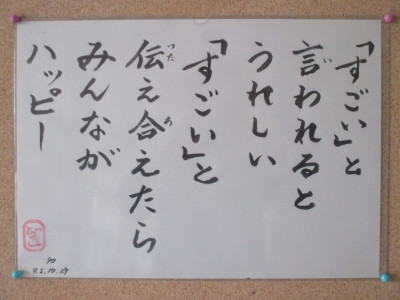 「すごい」と
言われると
うれしい
「すごい」と
伝え合えたら
みんなが
ハッピー